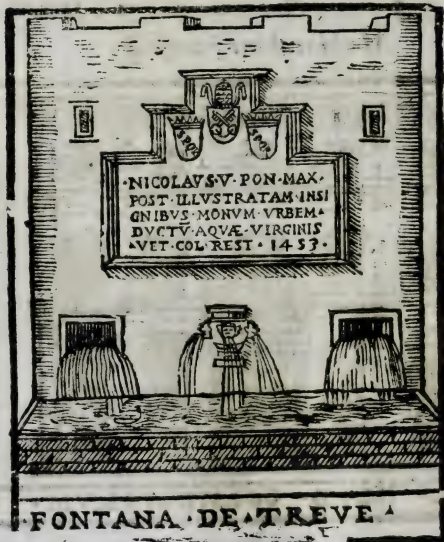 SPQR SPQR
·NICOLAVS·V·PON·MAX·
POST·ILLVSTRATAM·INSI
GNIBVS·MONVM·VRBEM·
DVCTV̄·AQVÆ·VIRGINIS
·VET·COL·REST·1453·
·FONTANA·DE·TREVE·